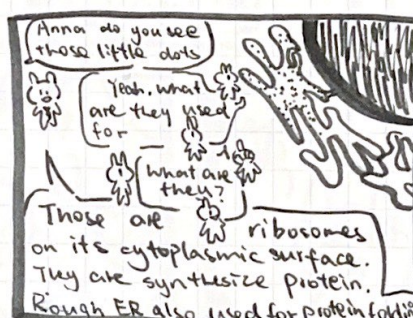 Anna do you see
those little dots
Yeah, what
are they used
for
What are
they?
Those are ribosomes
on its cytoplasmic surface.
They are synthesize protein.
Rough ER also used for protein foldi